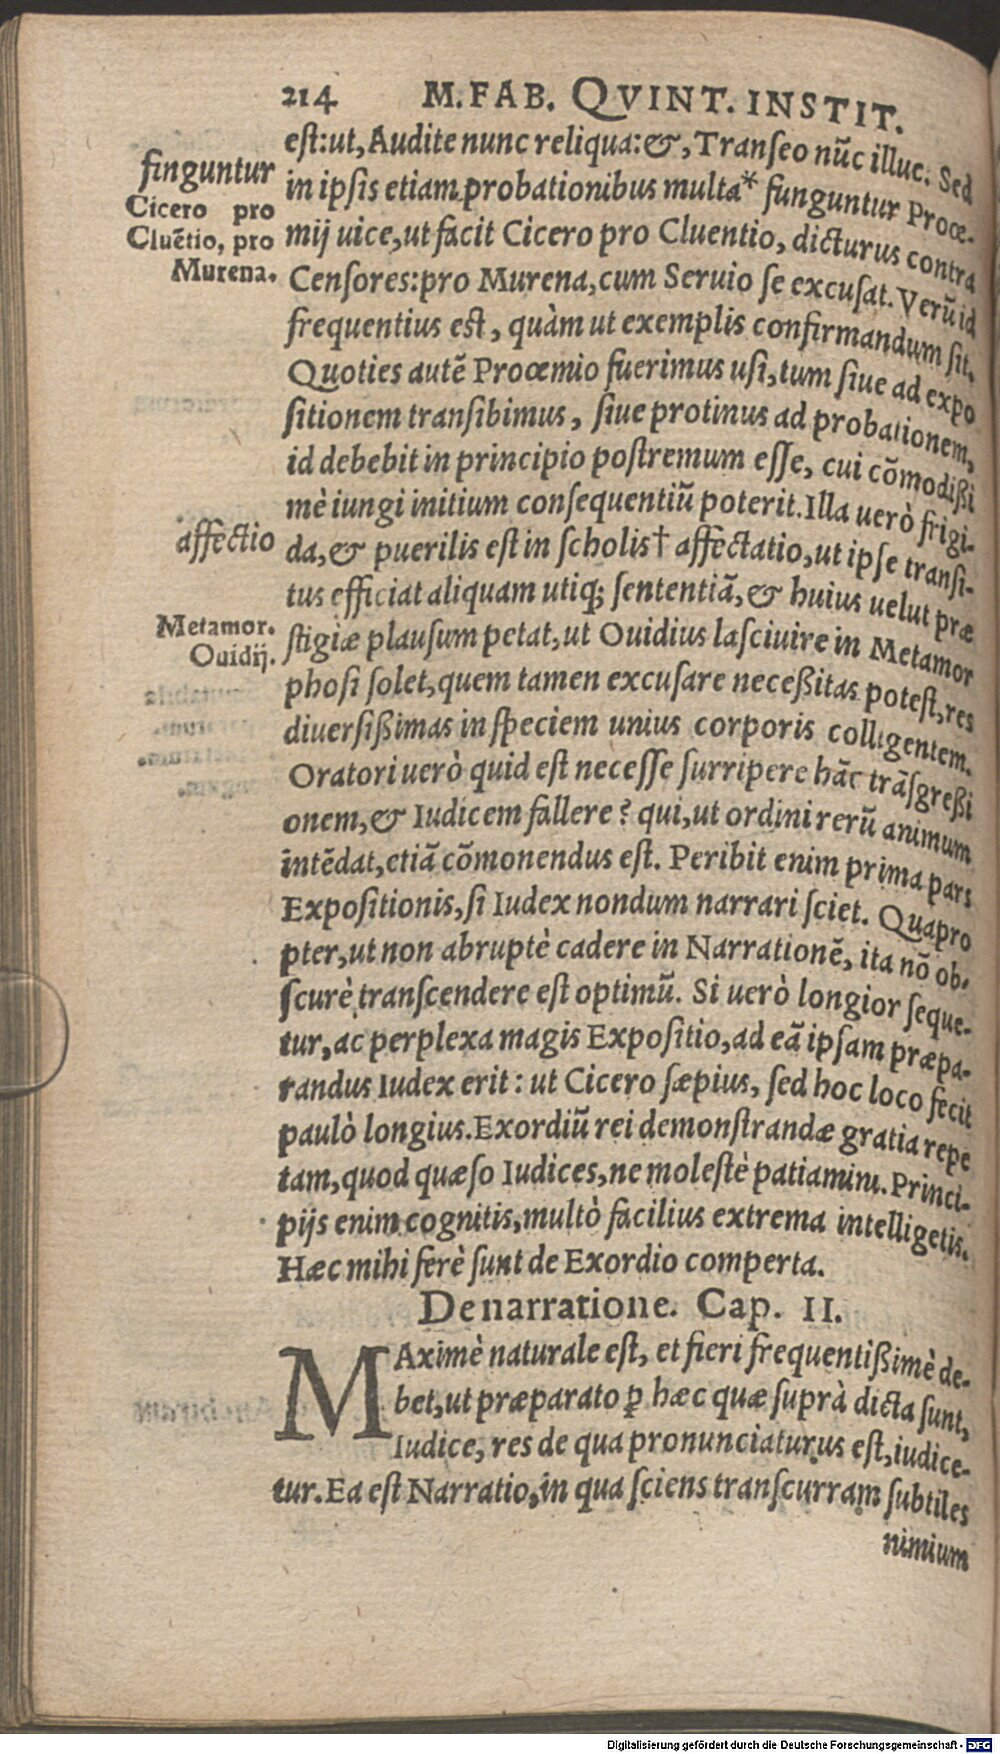 214 M. FAB. QVINT. INSTIT.
est: ut, Audite nunc reliqua: &, Transeo nūc illuc. Sed
in ipsis etiam probationibus multa* funguntur Proœ-
mij uice, ut facit Cicero pro Cluentio, dicturus contra
Censores: pro Murena, cum Seruio se excusat. Verū id
frequentius est, quàm ut exemplis confirmandum sit.
Quoties autē Proœmio fuerimus usi, tum siue ad expo
sitionem transibimus, siue protinus ad probationem,
id debebit in principio postremum esse, cui cōmodißi
mè iungi initium consequentiū poterit. Illa uerò frigi-
da, & puerilis est in scholis† affectatio, ut ipse transi-
tus efficiat aliquam utiq; sententiā, & huius uelut præ
stigiæ plausum petat, ut Ouidius lasciuire in Metamor
phosi solet, quem tamen excusare neceßitas potest, res
diuersißimas in speciem unius corporis colligentem.
Oratori uerò quid est necesse surripere hāc trāsgreßi
onem, & Iudicem fallere? qui, ut ordini rerū animum
intēdat, etiā cōmonendus est. Peribit enim prima pars
Expositionis, si Iudex nondum narrari sciet. Quapro
pter, ut non abruptè cadere in Narrationē, ita nō ob-
scurè transcendere est optimū. Si uerò longior seque-
tur, ac perplexa magis Expositio, ad eā ipsam præpa-
randus Iudex erit: ut Cicero sæpius, sed hoc loco fecit
paulò longius. Exordiū rei demonstrandæ gratia repe
tam, quod quæso Iudices, ne molestè patiamini. Princi-
pijs enim cognitis, multò facilius extrema intelligetis.
Hæc mihi ferè sunt de Exordio comperta.
De narratione. Cap. II.
MAximè naturale est, et fieri frequentißimè de-
bet, ut præparato ꝑ hæc quæ suprà dicta sunt,
Iudice, res de qua pronunciaturus est, iudice-
tur. Ea est Narratio, in qua sciens transcurram subtiles
nimium
finguntur
Cicero pro
Cluētio, pro
Murena.
affectio
Metamor.
Ouidij.
Digitalisierung gefördert durch die Deutsche Forschungsgemeinschaft - DFG